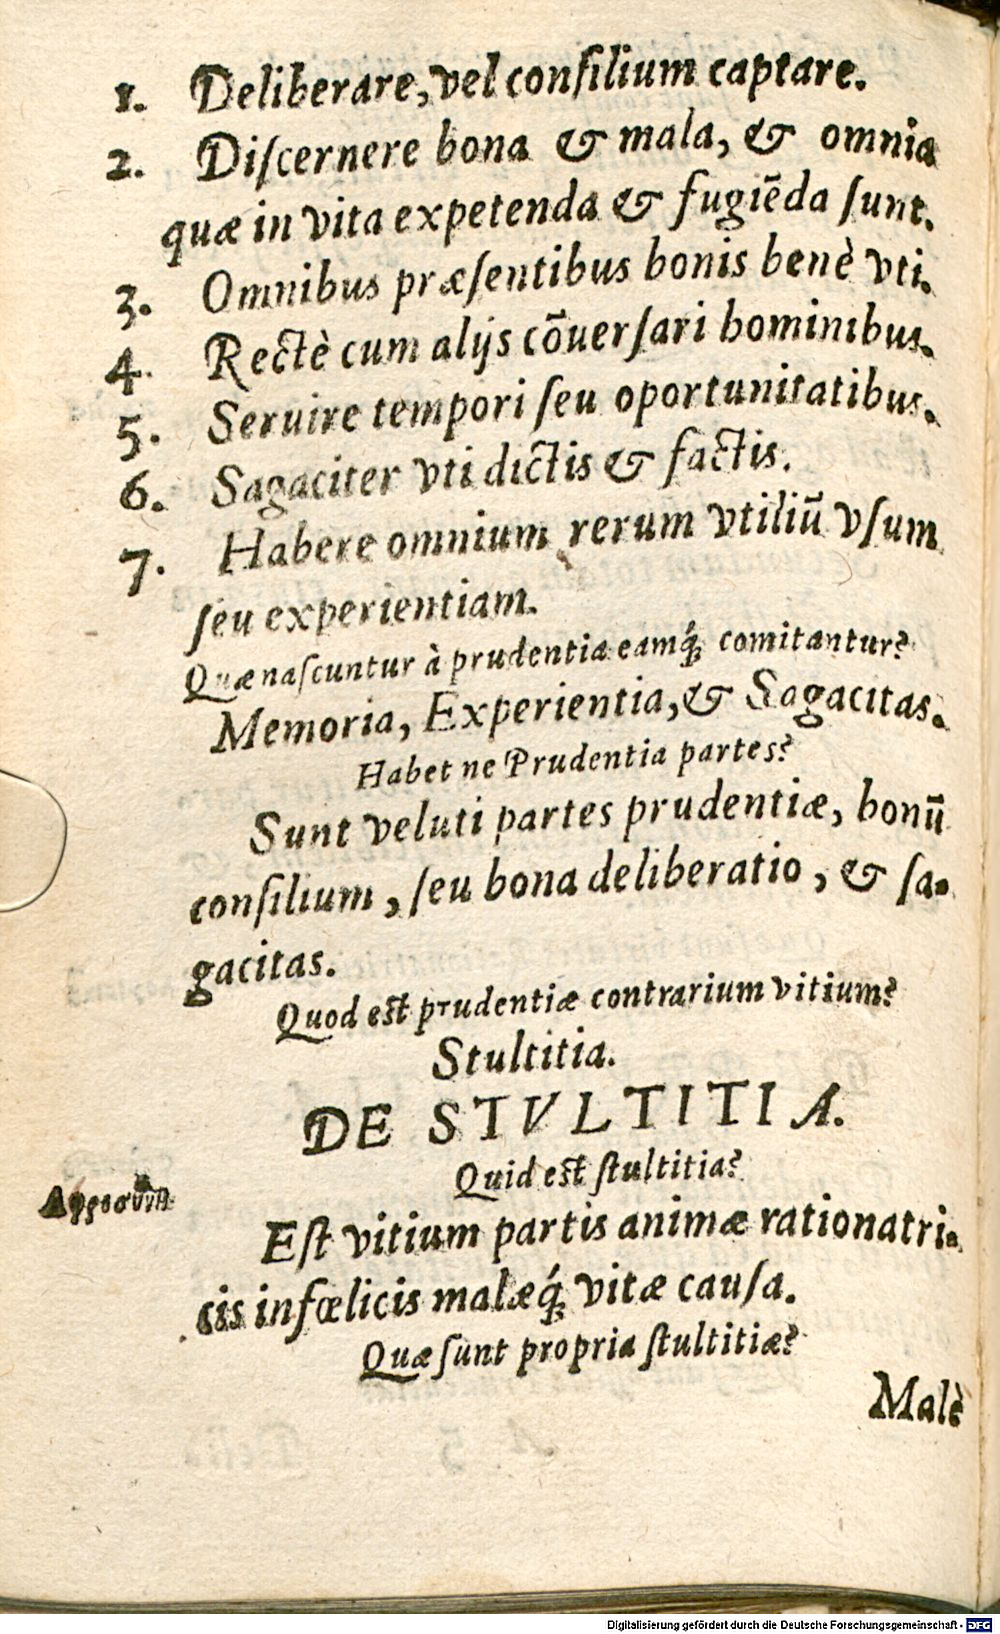 1. Deliberare, vel consilium captare.
2. Discernere bona & mala, & omnia
quæ in vita expetenda & fugiēda sunt.
3. Omnibus præsentibus bonis benè vti.
4. Rectè cum alijs cōuersari hominibus.
5. Seruire tempori seu oportunitatibus.
6. Sagaciter vti dictis & factis.
7. Habere omnium rerum vtiliū vsum
seu experientiam.
Quæ nascuntur à prudentia eamq́; comitantur?
Memoria, Experientia, & Sagacitas.
Habet ne Prudentia partes?
Sunt veluti partes prudentiæ, bonū
consilium, seu bona deliberatio, & sa-
gacitas.
Quod est prudentiæ contrarium vitium?
Stultitia.
DE STVLTITIA.
Quid est stultitia?
Ἀφροσύνη.
Est vitium partis animæ rationatri-
cis infœlicis malæq́; vitæ causa.
Quæ sunt propria stultitiæ?
Malè
Digitalisierung gefördert durch die Deutsche Forschungsgemeinschaft - DFG